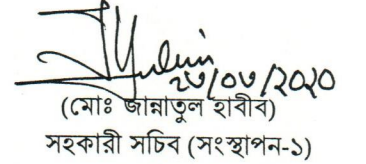 ২৩/০৩/২০২০
(মোঃ জান্নাতুল হাবীব)
সহকারী সচিব (সংস্থাপন-১)